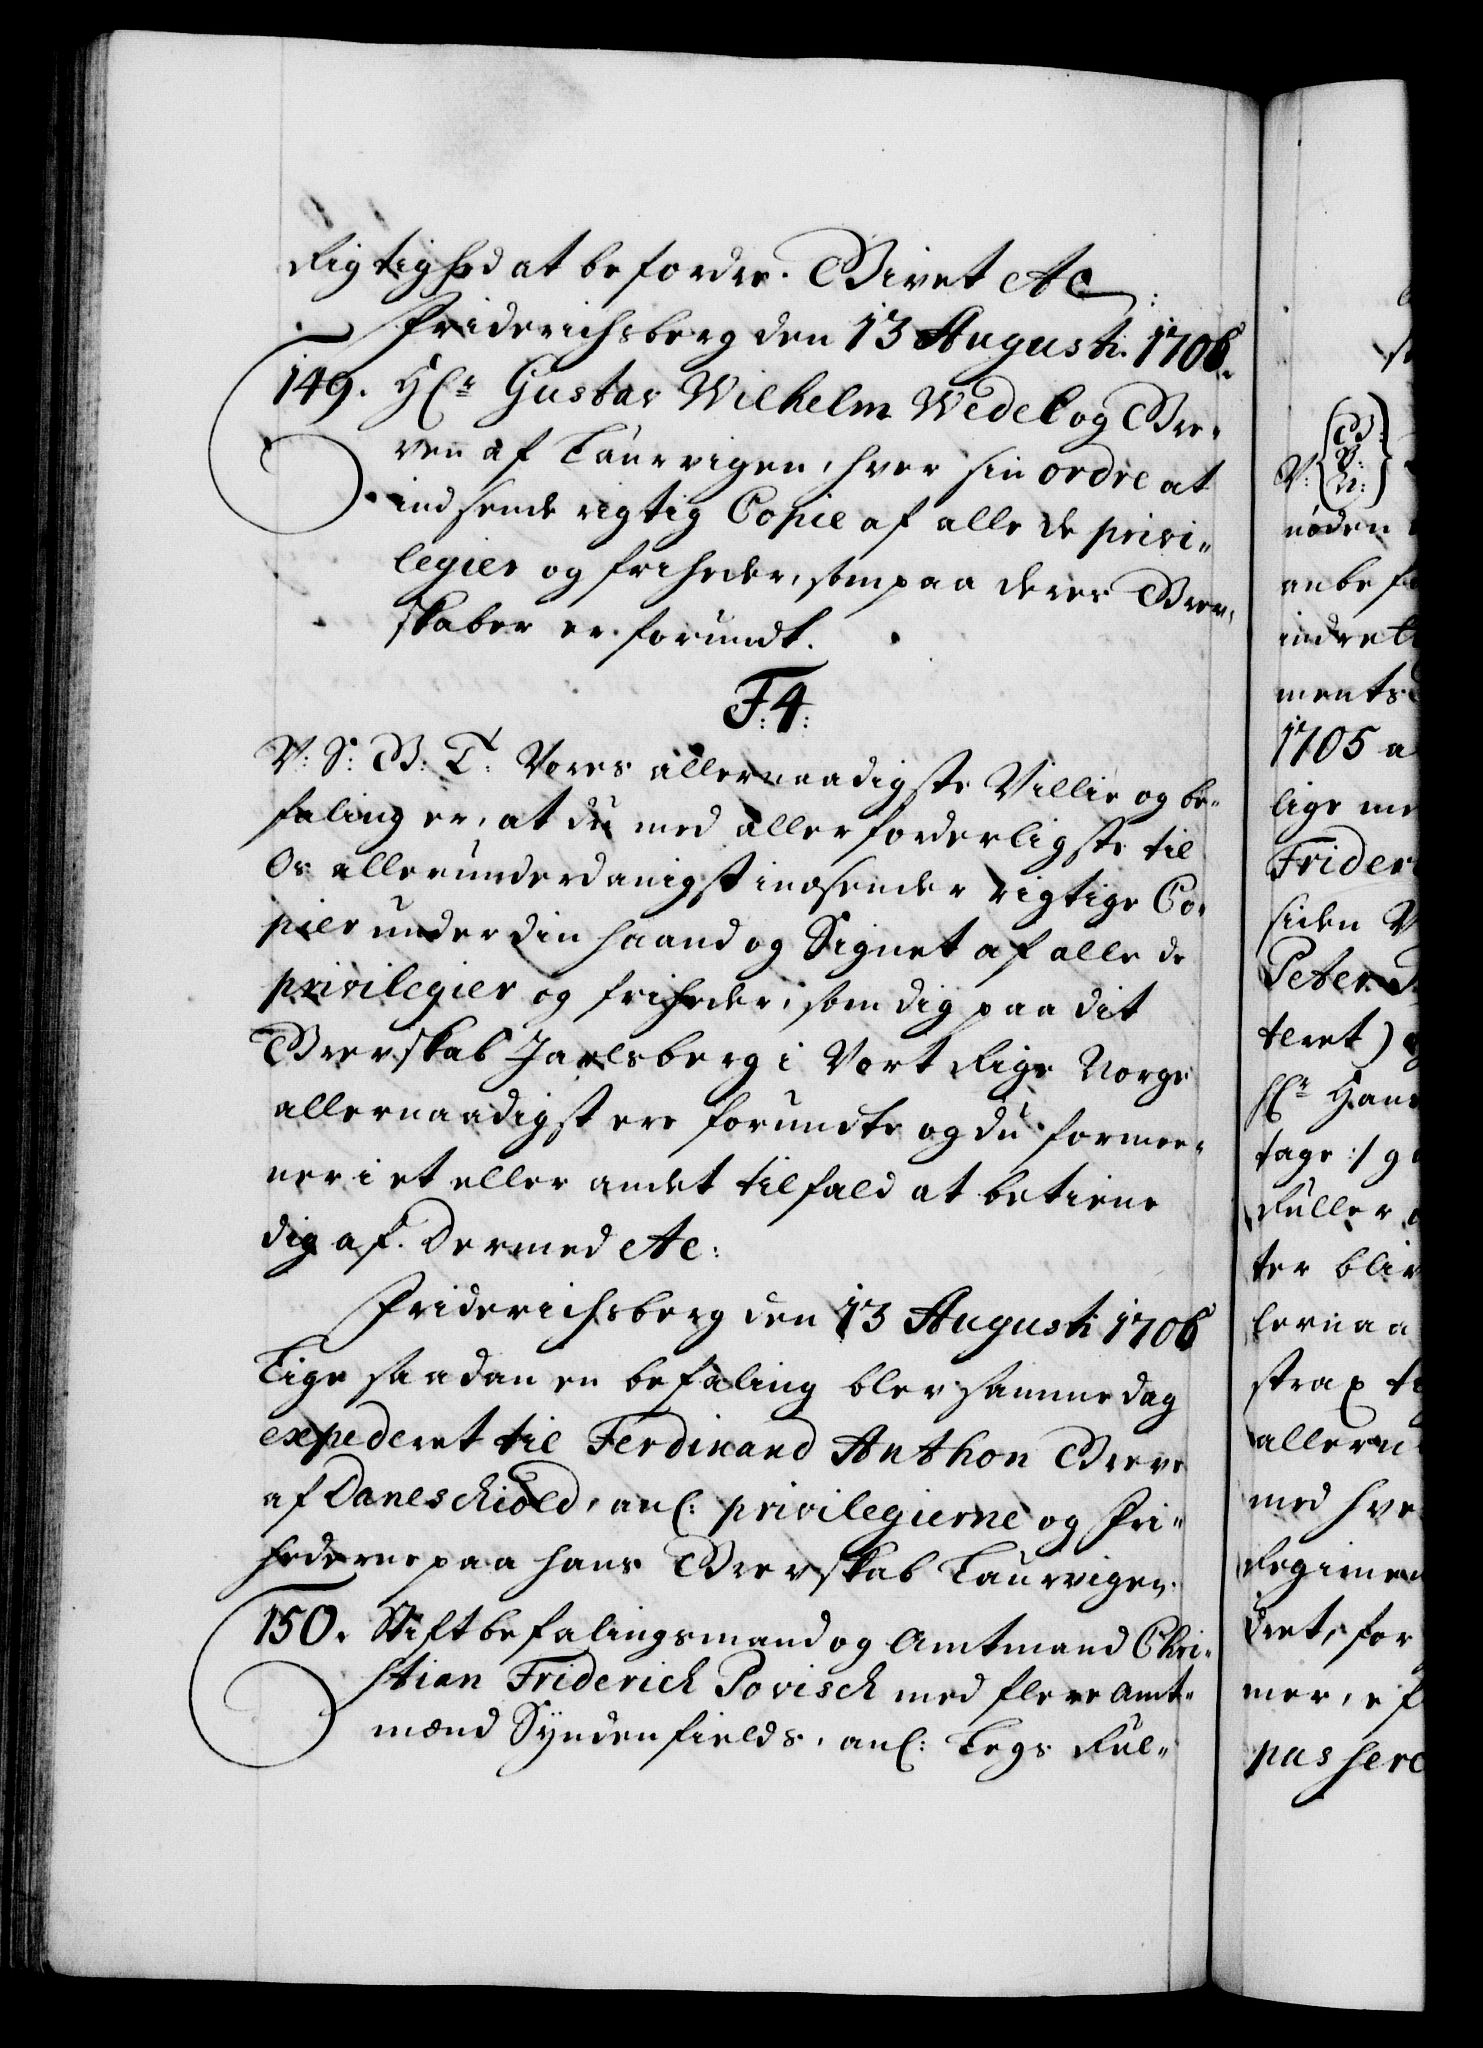 Rigtighed at befordre. Givet etc:
Friderichsberg den 13 Augusti. 1706.
149. Hr: Gustav Wilhelm Wedel og Gre-
ven af Laurvigen, hver sin ordre at
indsende rigtig Copie af alle de privi-
legier og friheder, som paa deres Grev-
skaber er forundt.
F: 4:
V: S: G: T: Vores allernaadigste Villie og be-
faling er, at du med allerforderligste til
Os allerunderdanigst indsender rigtige Co-
pier under din haand og Signet af alle de
privilegier og friheder, som dig paa dit
Grevskab Jarlsberg i Vort Rige Norge
allernaadigst ere forundte og du formee-
ner i et eller andet tilfald at betiene
dig af. Dermed etc:
Friderichsberg den 13 Augusti 1706
Lige saadan en befaling blev samme dag
expederet til Ferdinand Anthon Greve
af Daneschiold, anl: privilegierne og Fri-
hederne paa hans Grevskab Laurvigen.
150. Stiftbefalingsmand og Amtmand Chri-
stian Friderich Povisch med flere Amt-
mænd Syndenfields, anl: Legs Rul-
V: {G: V: N:}
nøden
anbefa
indrett
ments
1705 a
lige me
Frider
siden V
Peter
teret)
Hr: Hans
tage :/ g
Ruller
ter bliv
lernaa
strax ti
allern
med hve
Regimen
dret, for
mer, ef
passere